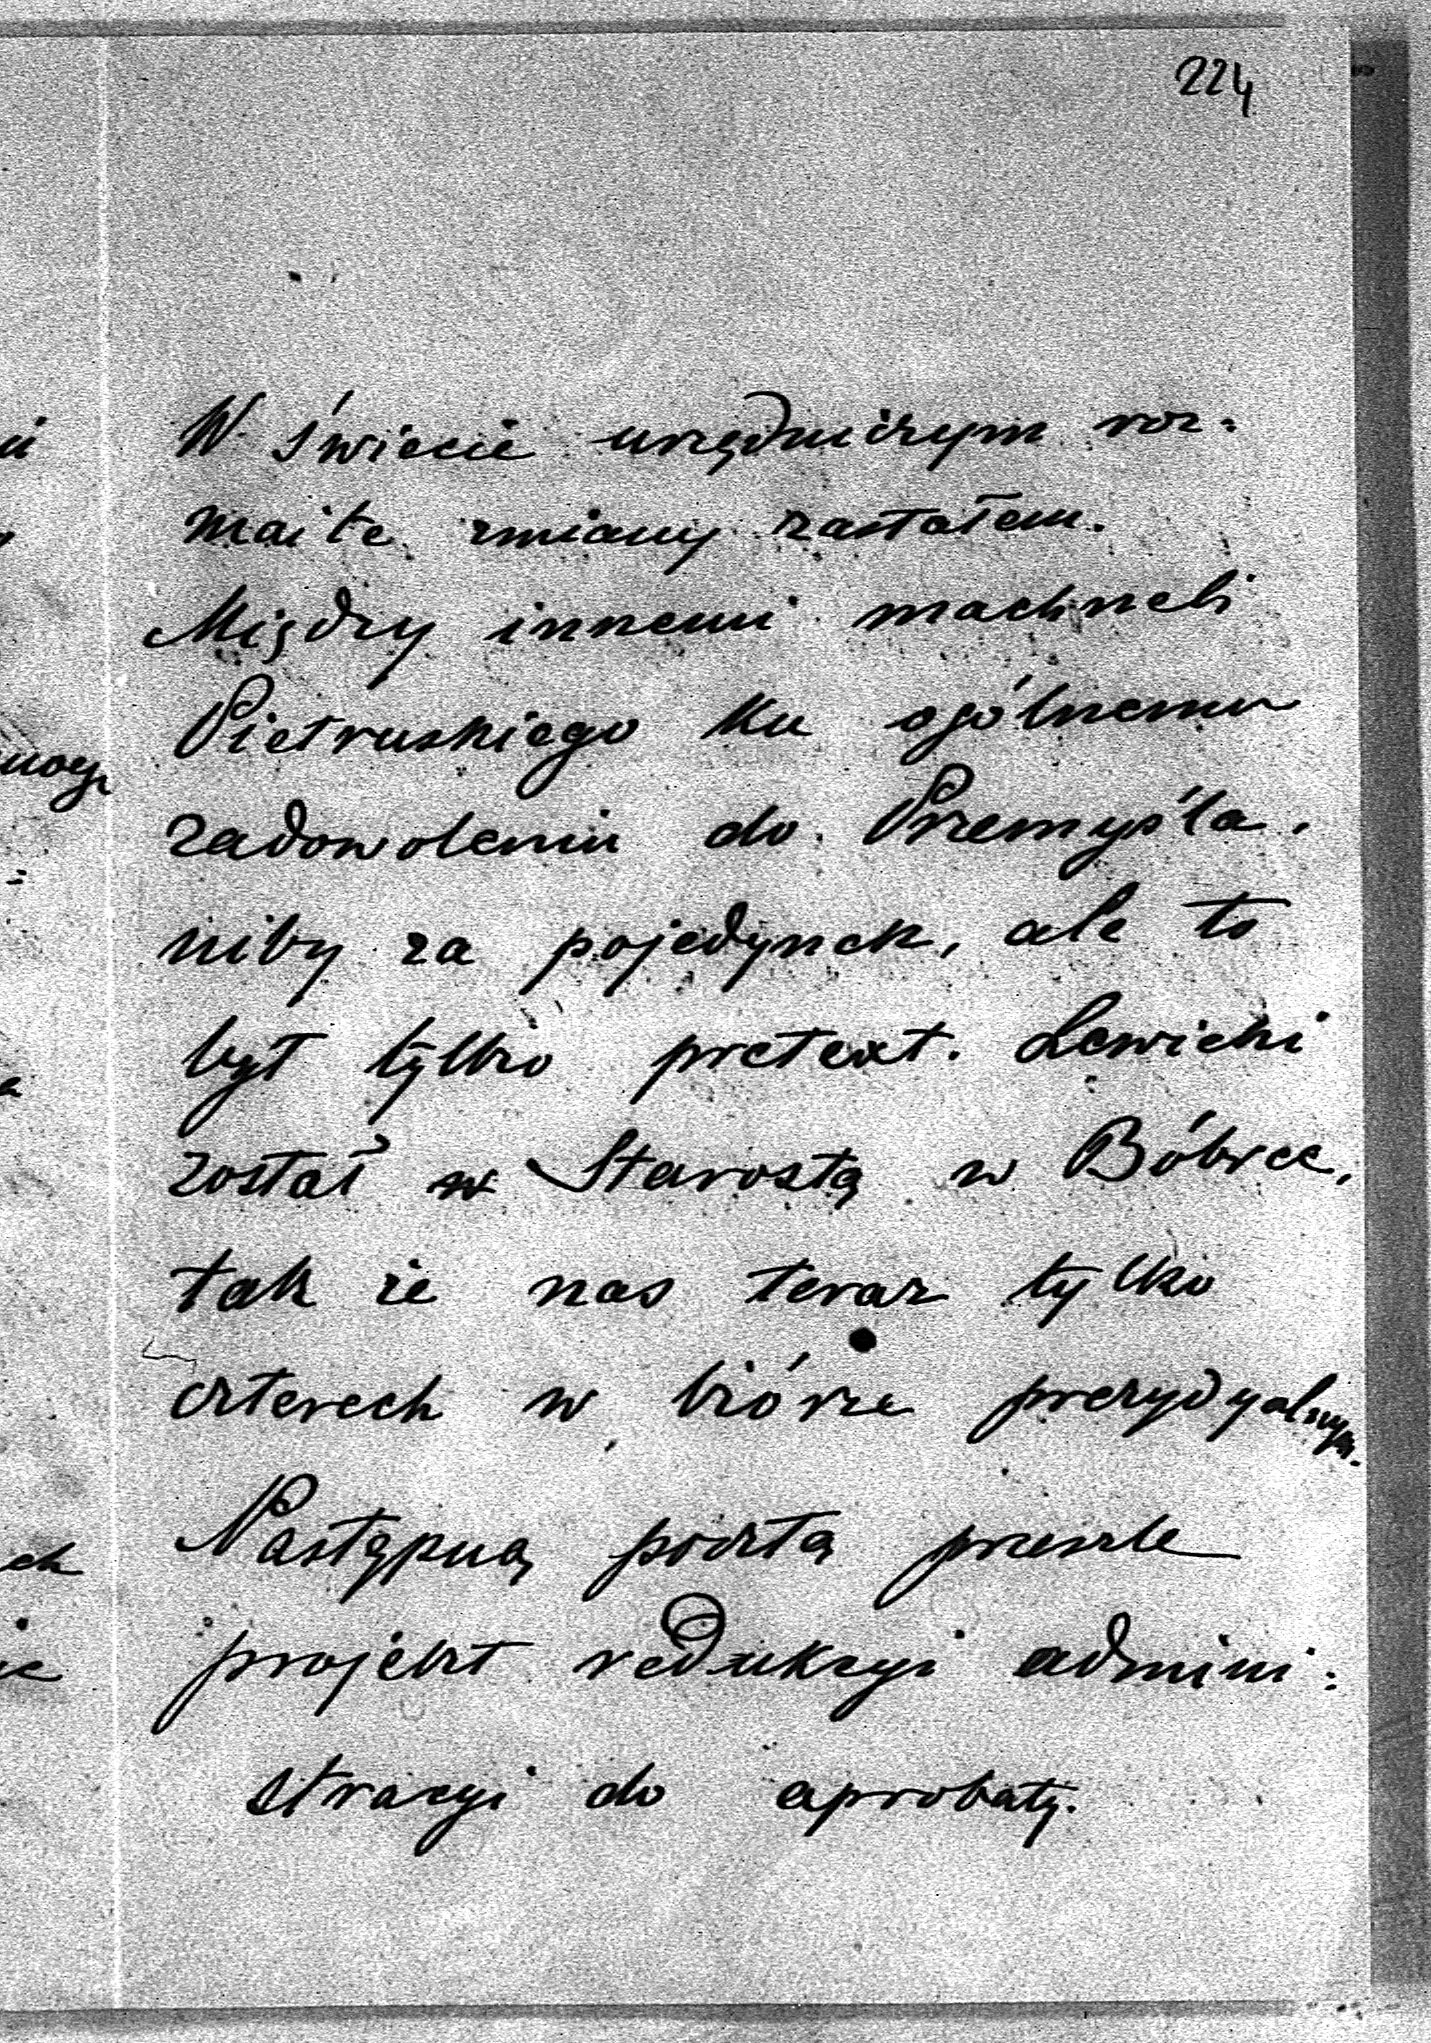 224
W świecie urzędniczym roz=
maite zmiany zastałem.
Między innemi machneli
Pietruskiego ku ogólnemu
zadowoleniu do Przemyśla,
niby za pojedynek, ale to
był tylko pretext. Lewicki
został w Starostą w Bóbrce,
tak że nas teraz tylko
czterech w biórze prezydyalnym.
Następną pocztą prześle
projekt redukcyi admini=
stracyi do aprobaty.